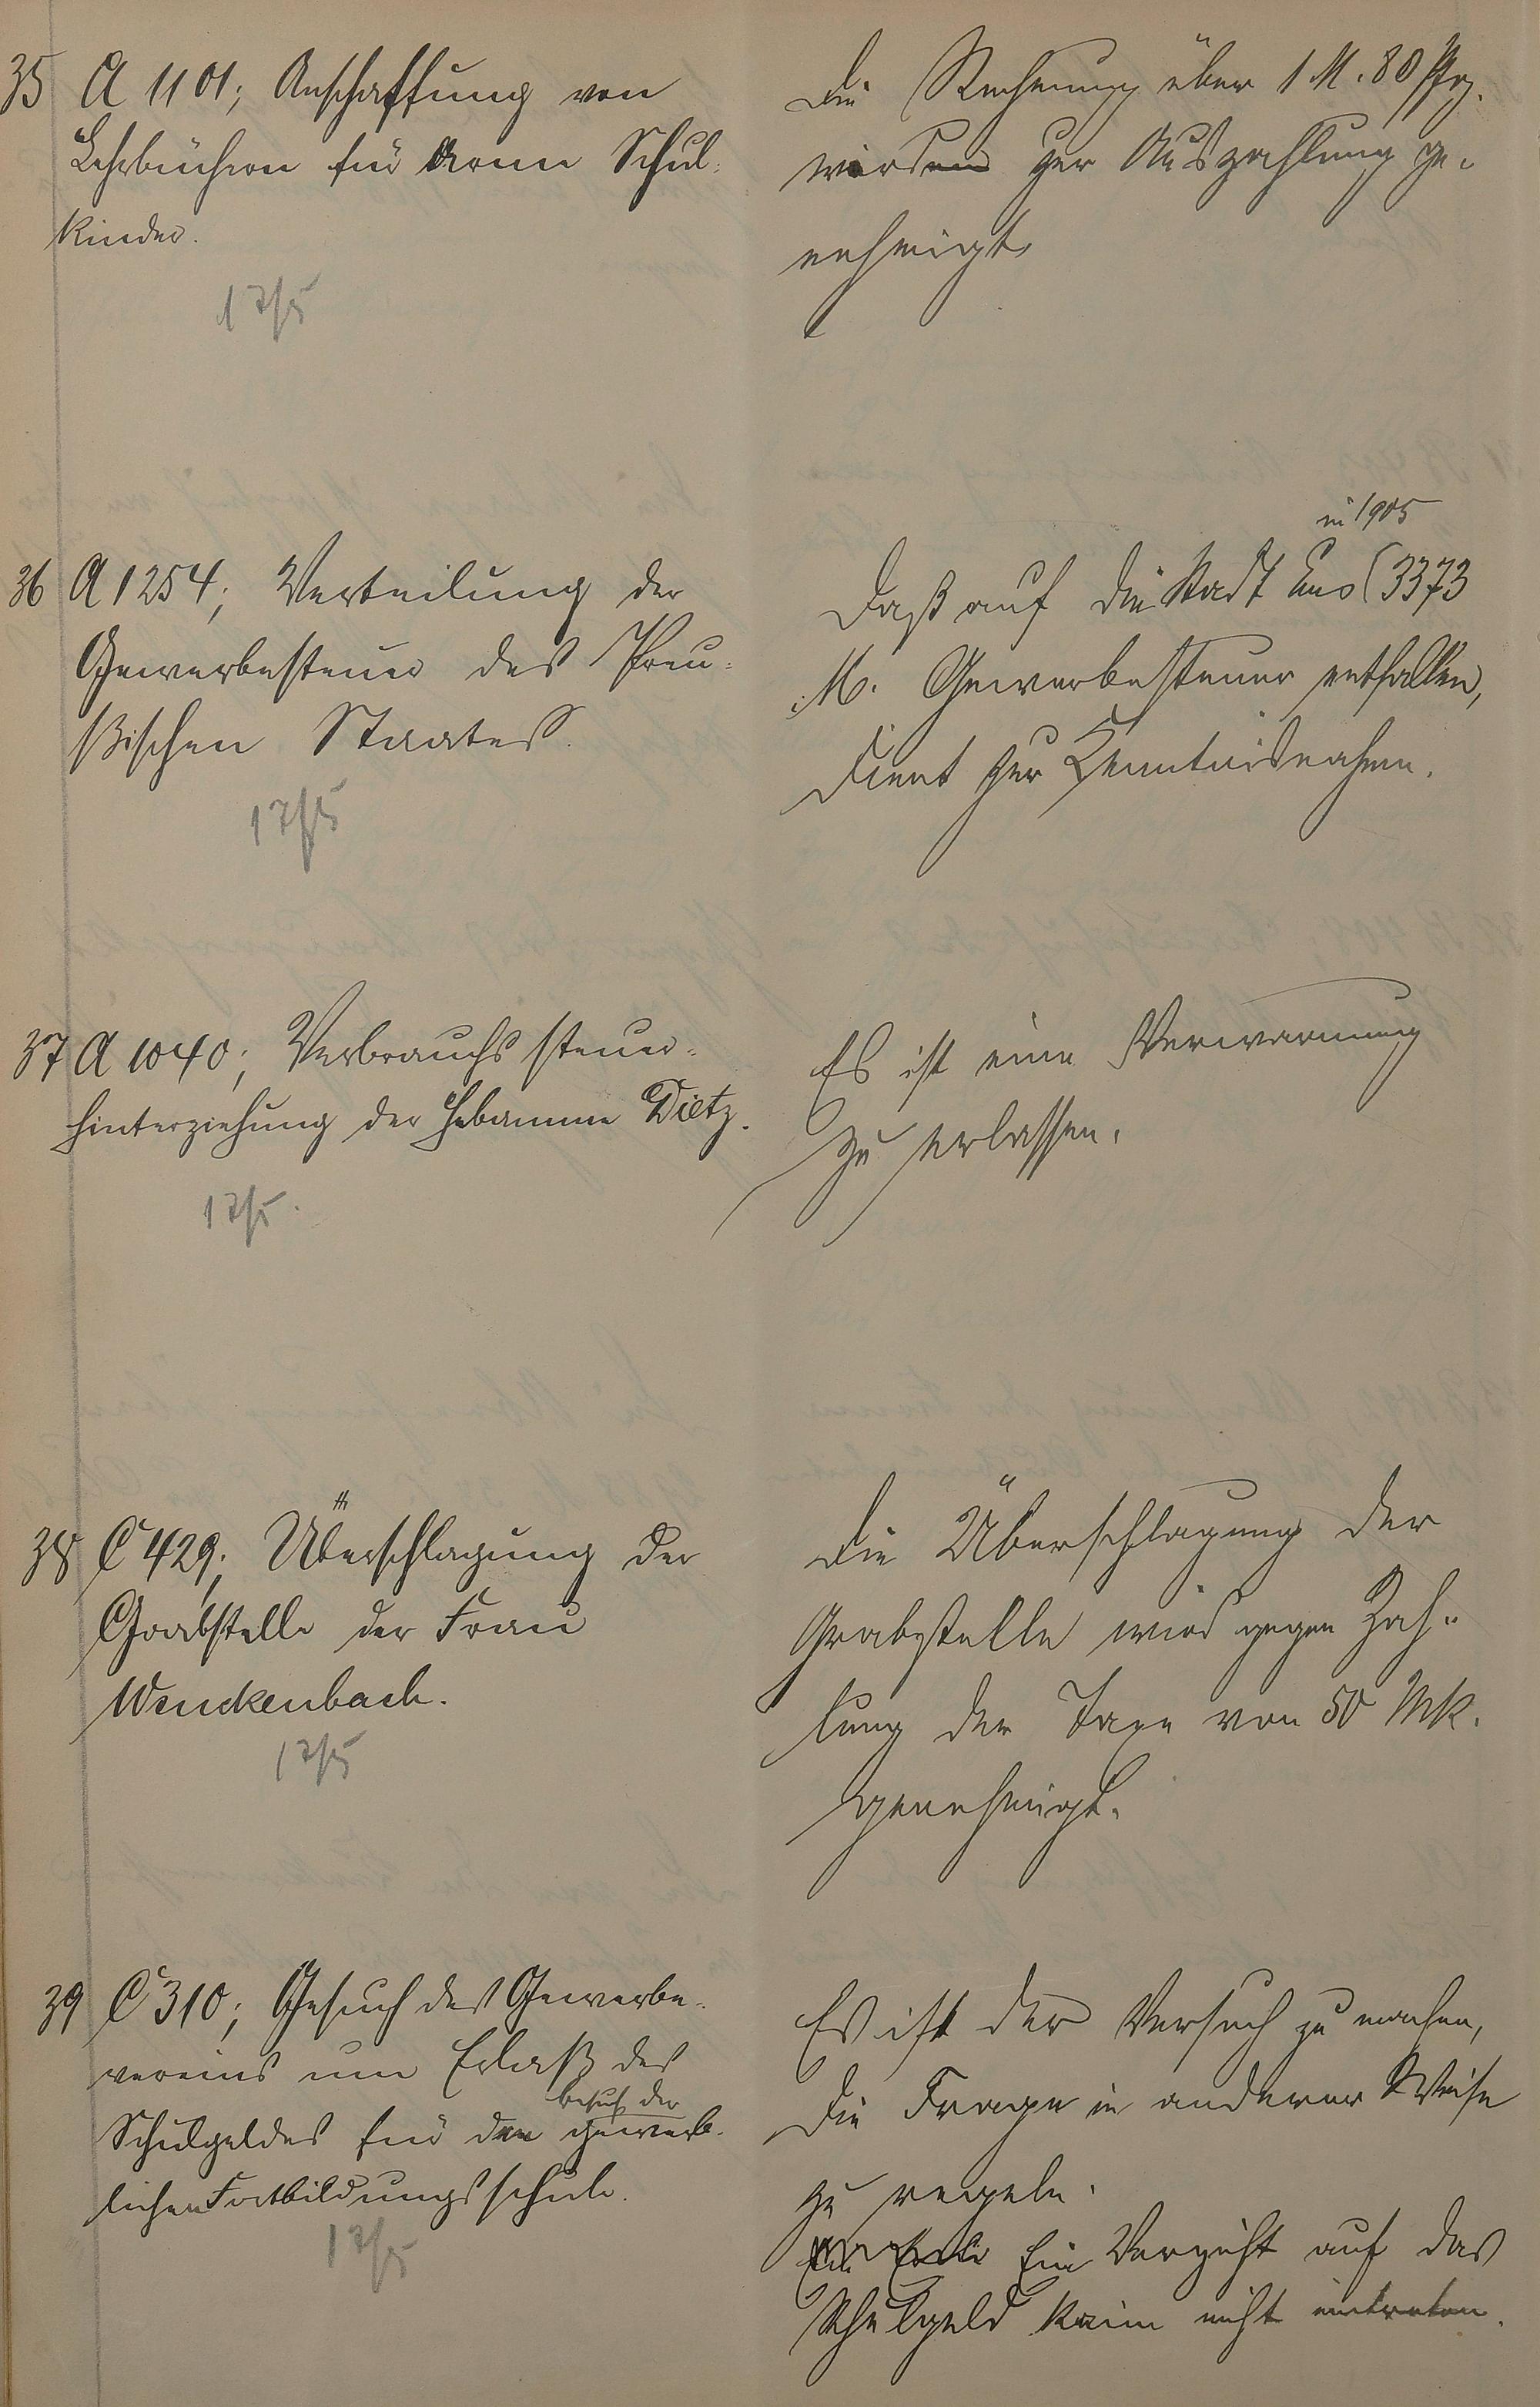 35 A 1101; Anschaffung von
Lehrbüchern für arme Schul-
kinder.
17/5
Die Rechnung über 1 M. 80 Pfg.
wird zur Auszahlung ge-
nehmigt.
36 A 1254; Verteilung der
Gewerbesteuer des Preu-
ßischen Staates.
17/5
in 1905
Daß auf die Stadt Ems (3373
M. Gewerbesteuer entfallen,
dient zur Kenntnisnahme.
37 A 1040; Verbrauchssteuer-
hinterziehung der Hebamme Dietz.
17/5.
Es ist eine Verwarnung
zu erlassen.
38 C 429; Überschlagung der
Grabstelle der Frau
Winckenbach.
17/5
Die Überschlagung der
Grabstelle wird gegen Zah-
lung der Taxe von 50 Mk.
genehmigt.
39 C 310; Gesuch des Gewerbe-
vereins um Erlaß des
Besuch der
Schulgeldes für den gewerb-
lichen Fortbildungsschule.
17/5
Es ist der Versuch zu machen,
die Frage in anderer Weise
zu regeln.
Ein Verzicht auf das
Schulgeld kann nicht eintreten.